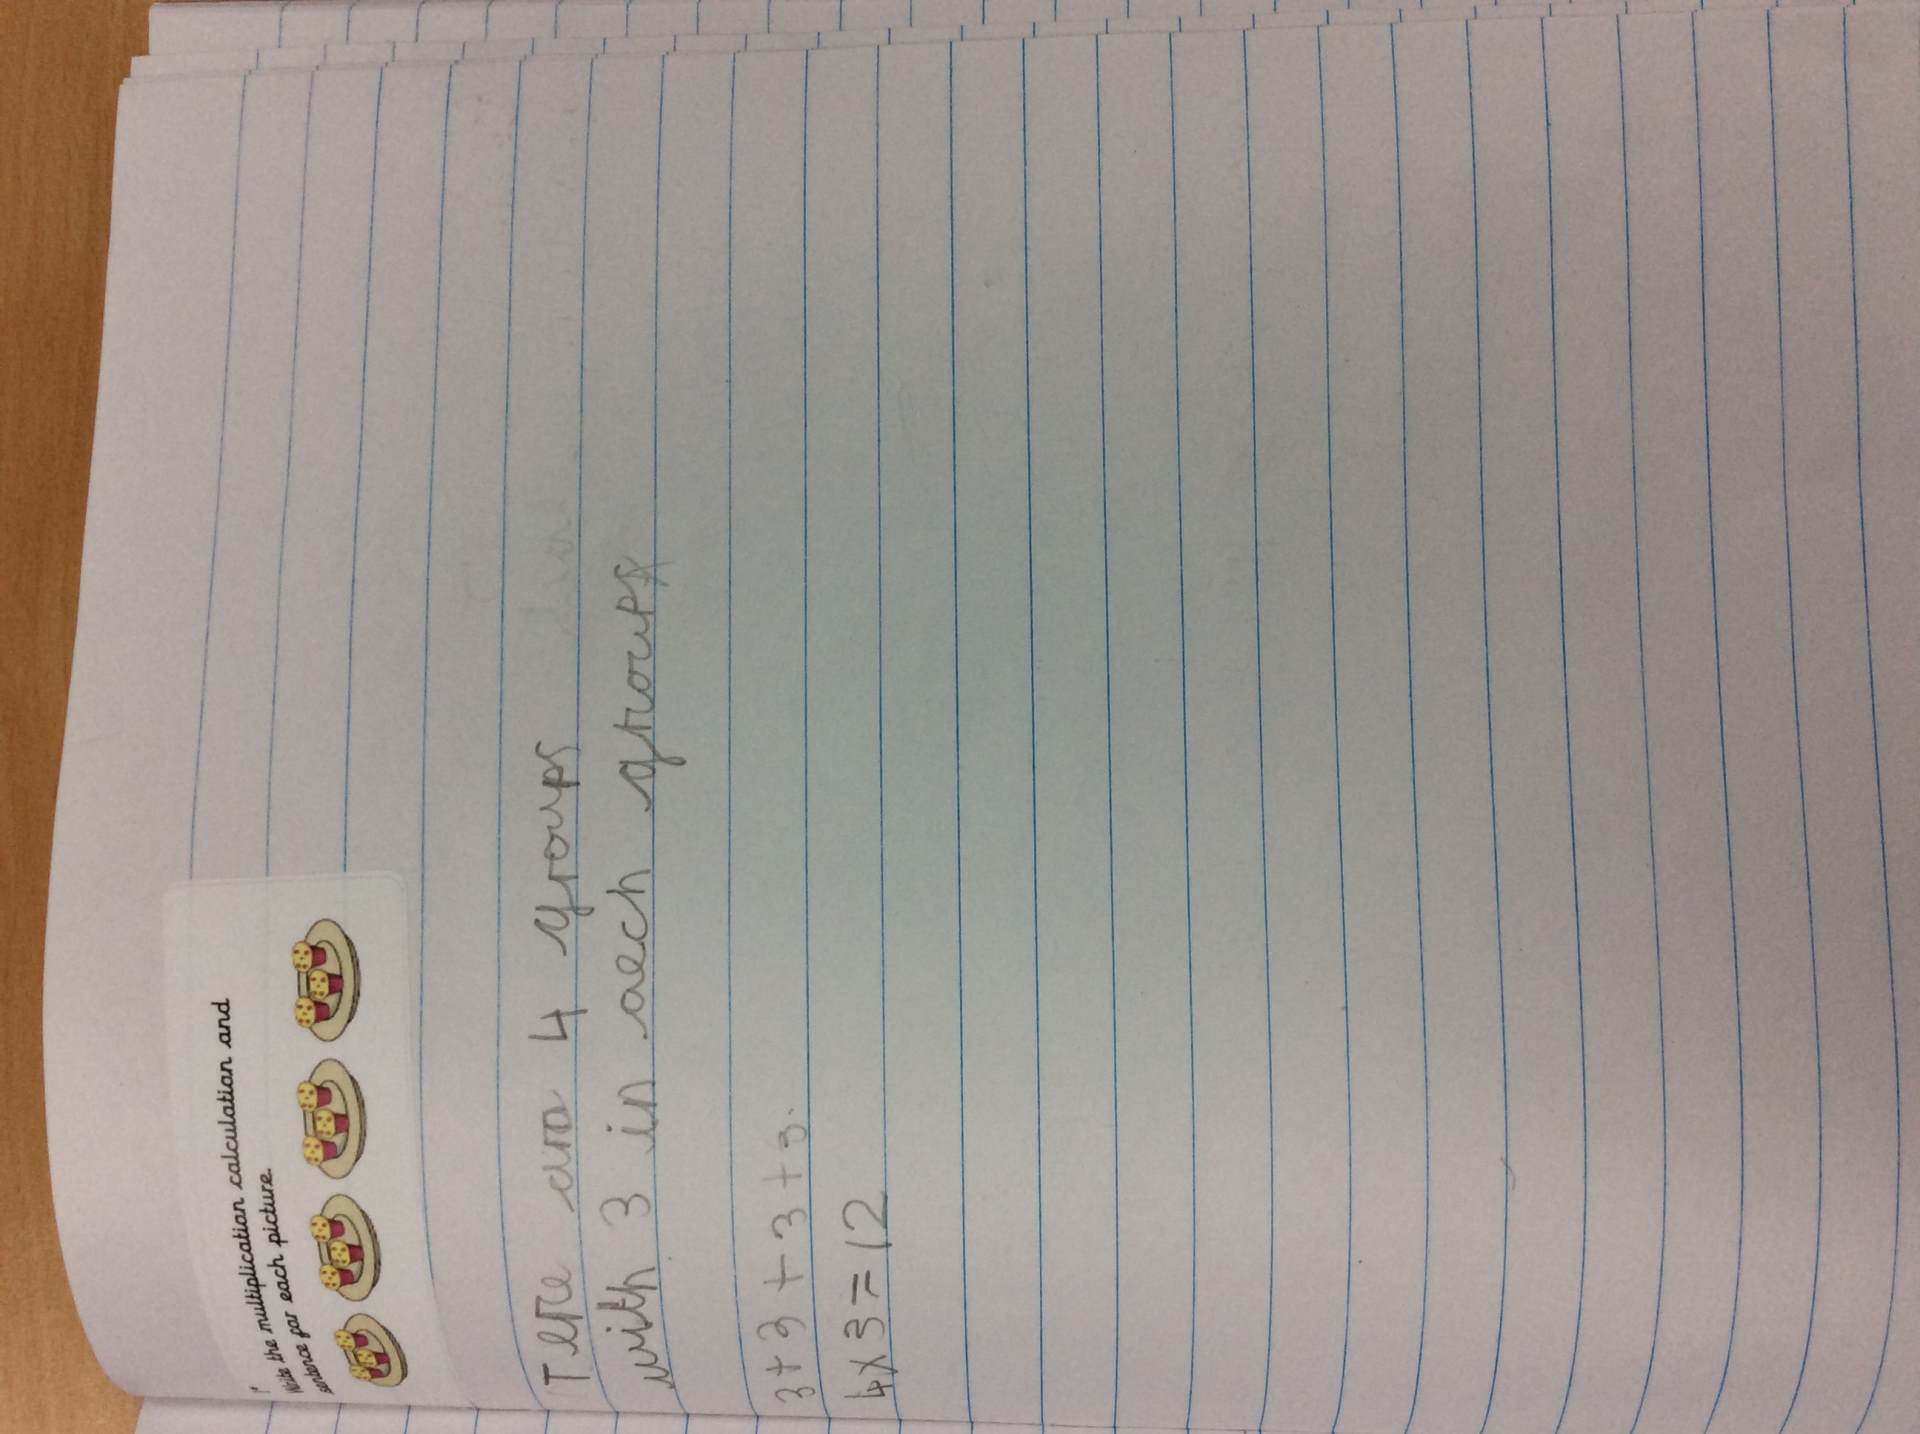 Write the multiplication calculation and
sentence for each picture.
Tere are 4 groups
with 3 in aech groups
3+3+3+3.
4x3=12